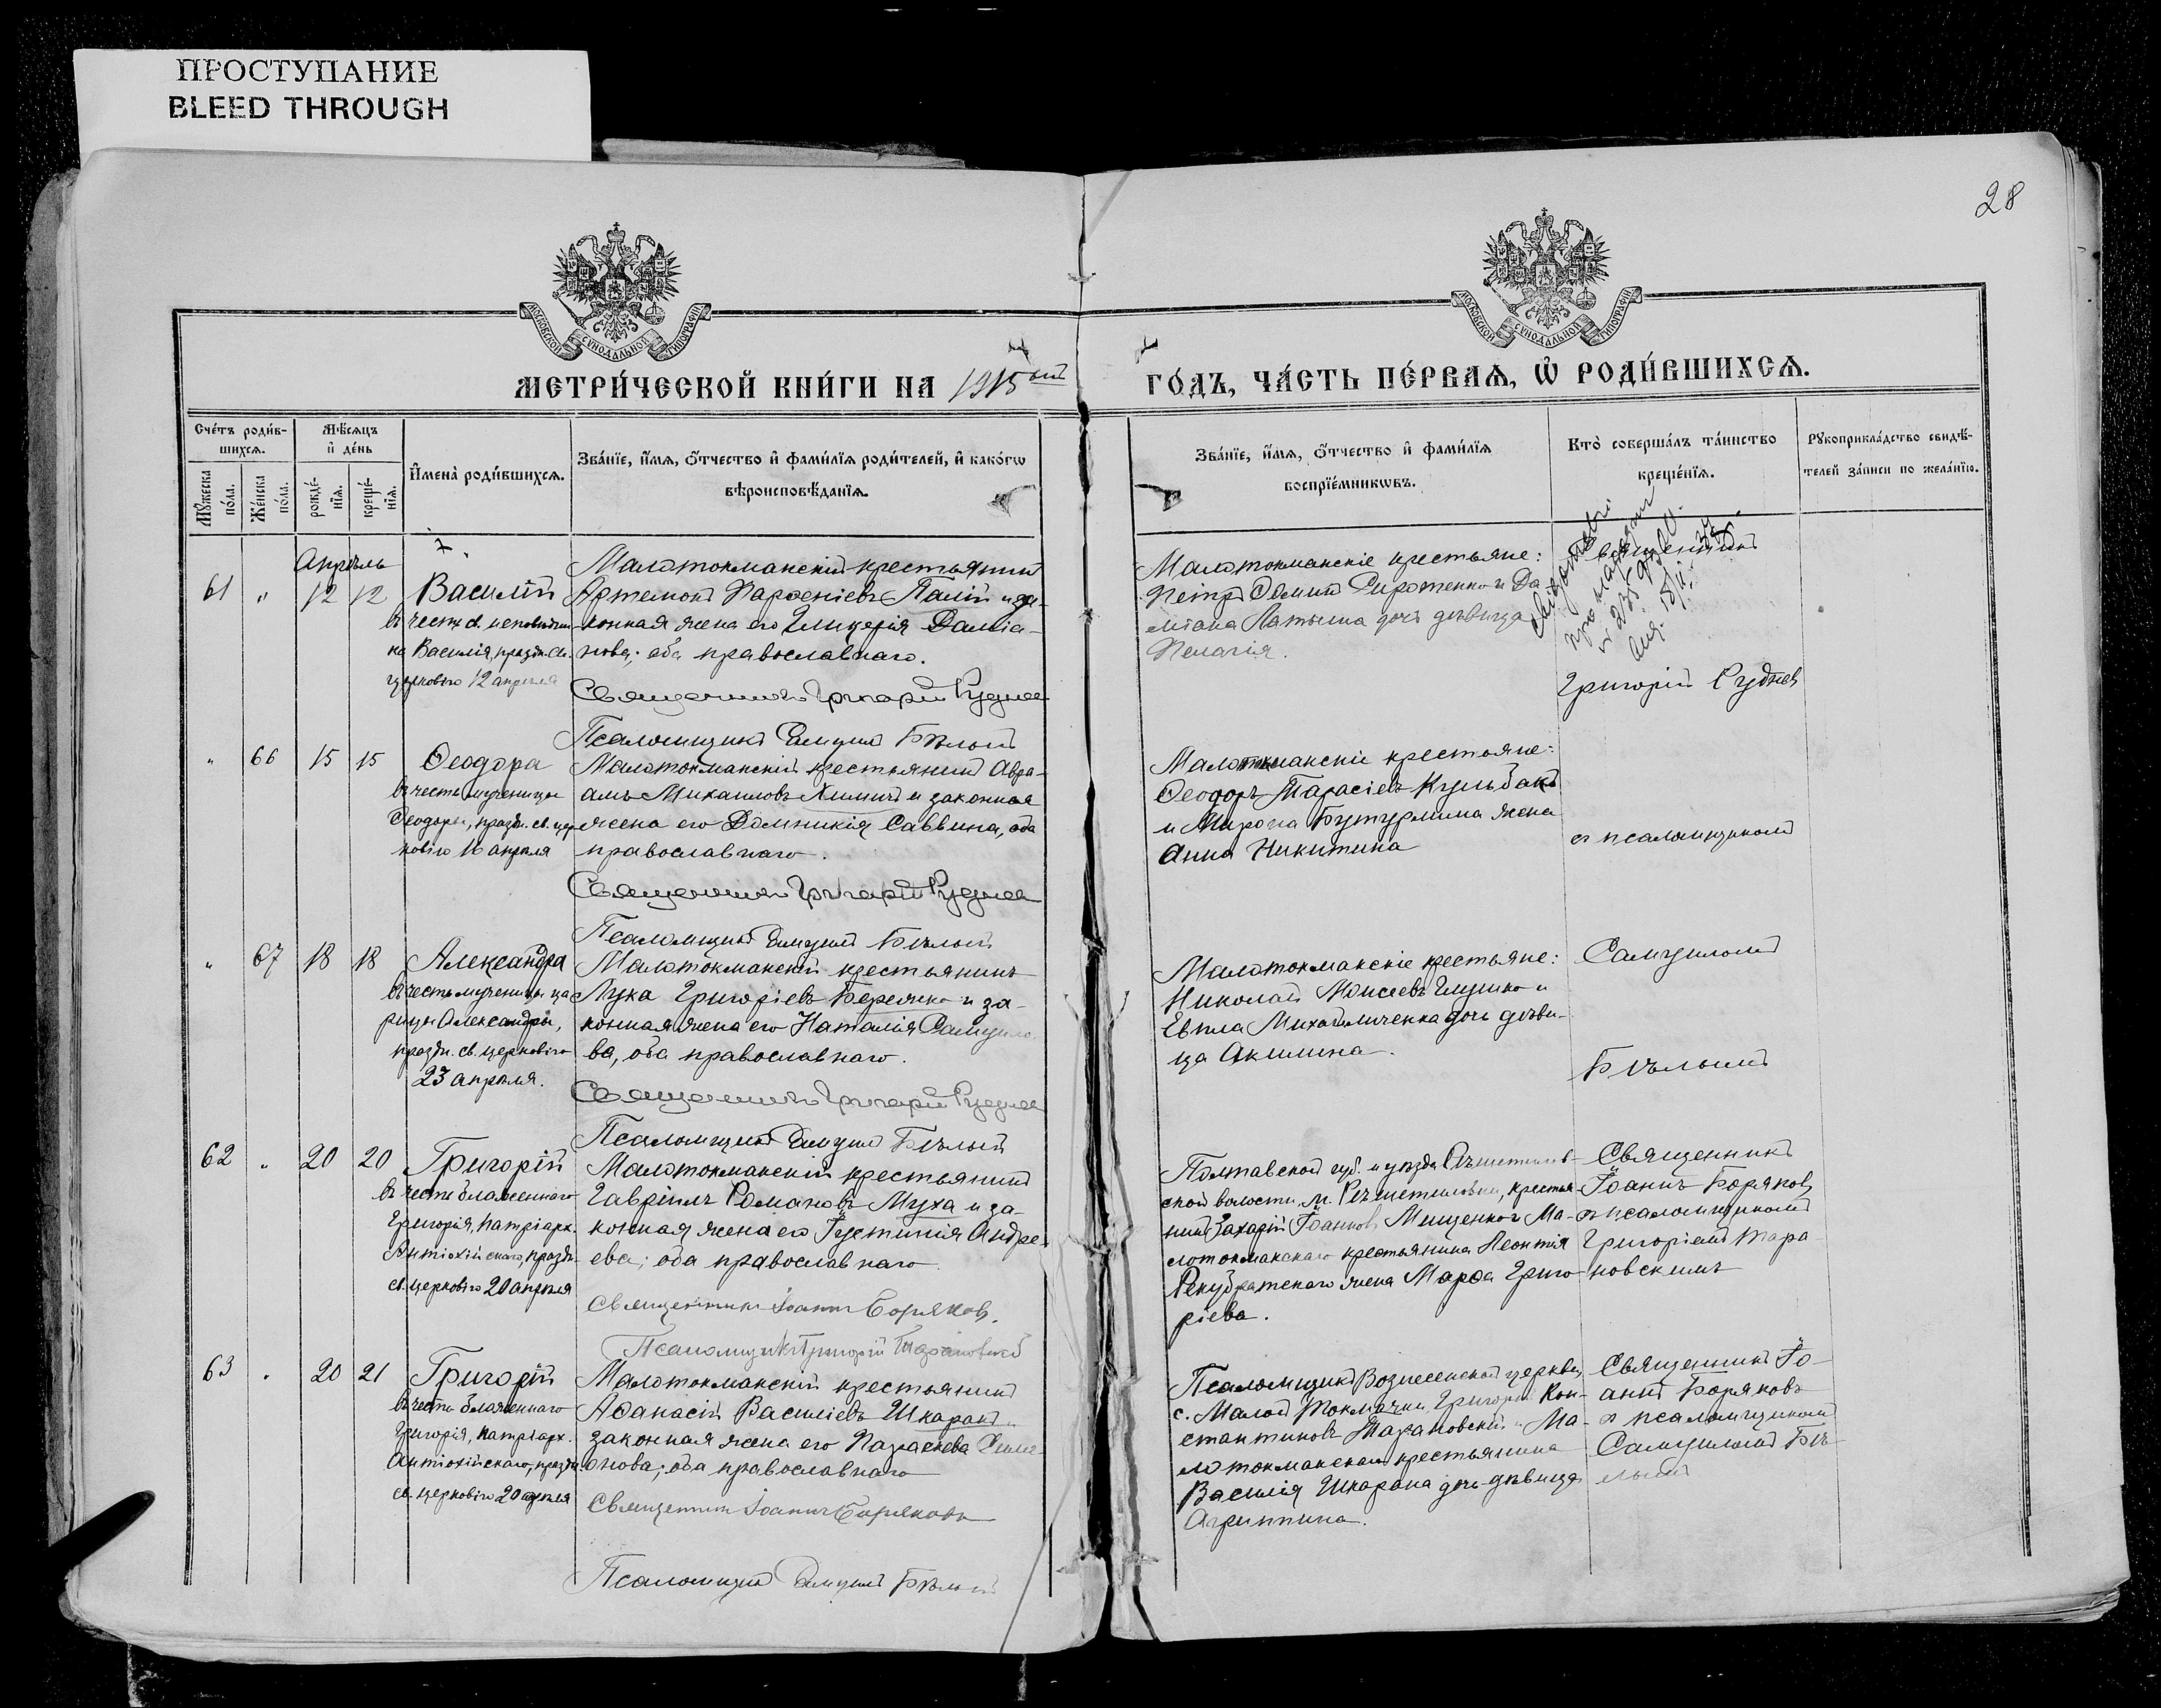 ПРОСТУПАНИЕ
BLEED THROUGH
28
МОСКОВСКОЙ СѴНОДАЛЬНОЙ ТИПОГРАФІИ
МОСКОВСКОЙ СѴНОДАЛЬНОЙ ТИПОГРАФІИ
МЕТРИ́ЧЕСКОЙ КНИ́ГИ НА 1915 ый
ГО́ДЪ, ЧА́СТЬ ПЕ́РВАѦ, Ѡ҆ РОДИ́ВШИХСѦ.
Сче́тъ роди́в-
шихсѧ.
Мꙋ́жеска по́ла.
Же́нска по́ла.
Мѣ́сѧцъ
и҆ де́нь
рожде́-
нїѧ.
креще́-
нїѧ.
И҆мена̀ роди́вшихсѧ.
Зва́нїе, и҆́мѧ, ѻ҆́тчество и҆ фами́лїѧ роди́телей, и҆ како́гѡ
вѣроисповѣ́данїѧ.
Зва́нїе, и҆́мѧ, ѻ҆́тчество и҆ фами́лїѧ
воспрїе́мникѡвъ.
Кто̀ соверша́лъ та́инство
креще́нїѧ.
Рꙋкоприкла́дство свидѣ́-
телей за́писи по жела́нїю.
Апрѣль
61 " 12 12 Василій
въ честь св. исповѣдни
ка Василія, праздн. св.
церковію 12 апрѣля
Малотокманскій крестьянинъ
Артемонъ Парѳеніевъ Палій и за-
конная жена его Гликерія Даміа-
нова; оба православнаго.
Священникъ Григорій Руднев
Псаломщикъ Самуилъ Бѣлый
Малотокманскіе крестьяне:
Петръ Ѳоминъ Сиротенко и Да-
міана Латыша дочь дѣвица
Пелагія.
Священникъ
Григорій Руднев
" 66 15 15 Ѳеодора
въ честь мученицы
Ѳеодоры, праздн. св. цер
ковію 16 апрѣля
Малотокманскій крестьянинъ Авра-
амъ Михаиловъ Химичъ и законная
жена его Домникія Саввина, оба
православнаго.
Священникъ Григорій Руднев
Псаломщикъ Самуилъ Бѣлый
Малотокманскіе крестьяне:
Ѳеодоръ Тарасіевъ Кульбака
и Мирона Бутурлима жена
Анна Никитина
съ псаломщикомъ
" 67 18 18 Александра
въ честь мученицы ца
рицы Александры,
праздн. св. церковію
23 апрѣля.
Малотокманскій крестьянинъ
Лука Григоріевъ Бережко и за-
конная жена его Наталія Самуило
ва, оба православнаго.
Священникъ Григорій Руднев
Псаломщикъ Самуилъ Бѣлый
Малотокманскіе крестьяне:
Николай Моисеевъ Глушко и
Евпла Михайличенка дочь дѣви-
ца Акилина.
Самуиломъ
Бѣлымъ
62 " 20 20 Григорій
въ честь блаженнаго
Григорія, патріарх.
Антіохійскаго, праздн.
св. церковію 20 апрѣля
Малотокманскій крестьянинъ
Гавріилъ Романовъ Муха и за-
конная жена его Іустинія Андре-
ева; оба православнаго.
Священникъ Іоаннъ Боряковъ.
Псаломщикъ Григорій Тарановскій
Полтавской губ. и уѣзда Рѣшетилов-
ской волости, м. Рѣшетиловки, крестья-
нинъ Захарій Іоанновъ Мищенко и Ма-
лотокманскаго крестьянина Леонтія
жена Марѳа Григо
ріева.
Священникъ
Іоаннъ Боряковъ
съ псаломщикомъ
Григоріемъ Тара
новскимъ
63 " 20 21 Григорій
въ честь блаженнаго
Григорія, патріарх.
Антіохійскаго, праздн.
св. церковію 20 апрѣля
Малотокманскій крестьянинъ
Аѳанасій Василіевъ Шкарапъ и
законная жена его Параскева Симе-
онова; оба православнаго
Священникъ Іоаннъ Боряковъ
Псаломщикъ Самуилъ Бѣлый
Псаломщикъ Вознесенской церкви,
с. Малой Токмачки, Григорій Кон-
стантиновъ Тарановскій и Ма-
лотокманскаго крестьянина
Василія Шкарапа дочь-дѣвица
Агриппина.
Священникъ Іо-
аннъ Боряковъ
съ псаломщикомъ
Самуиломъ Бѣ-
лымъ